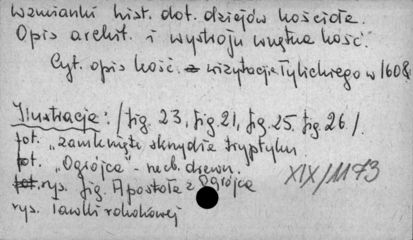 Wzmianki hist. dot. dziejów kościoła.
Opis archit. i wystroju wnętrza kośc.
Cyt. opis kośc. z wizytacji Tylickiego w 1608.
Ilustracje: / fig. 23, fig. 21, fig. 25. fig. 26 /.
fot. "zamknięte skrzydła tryptyku.
fot. "Ogrójca - rzeźb. drewn.
fot. rys. fig. Apostoła z Ogrójca
rys. ławki rokokowej
XIX/1173